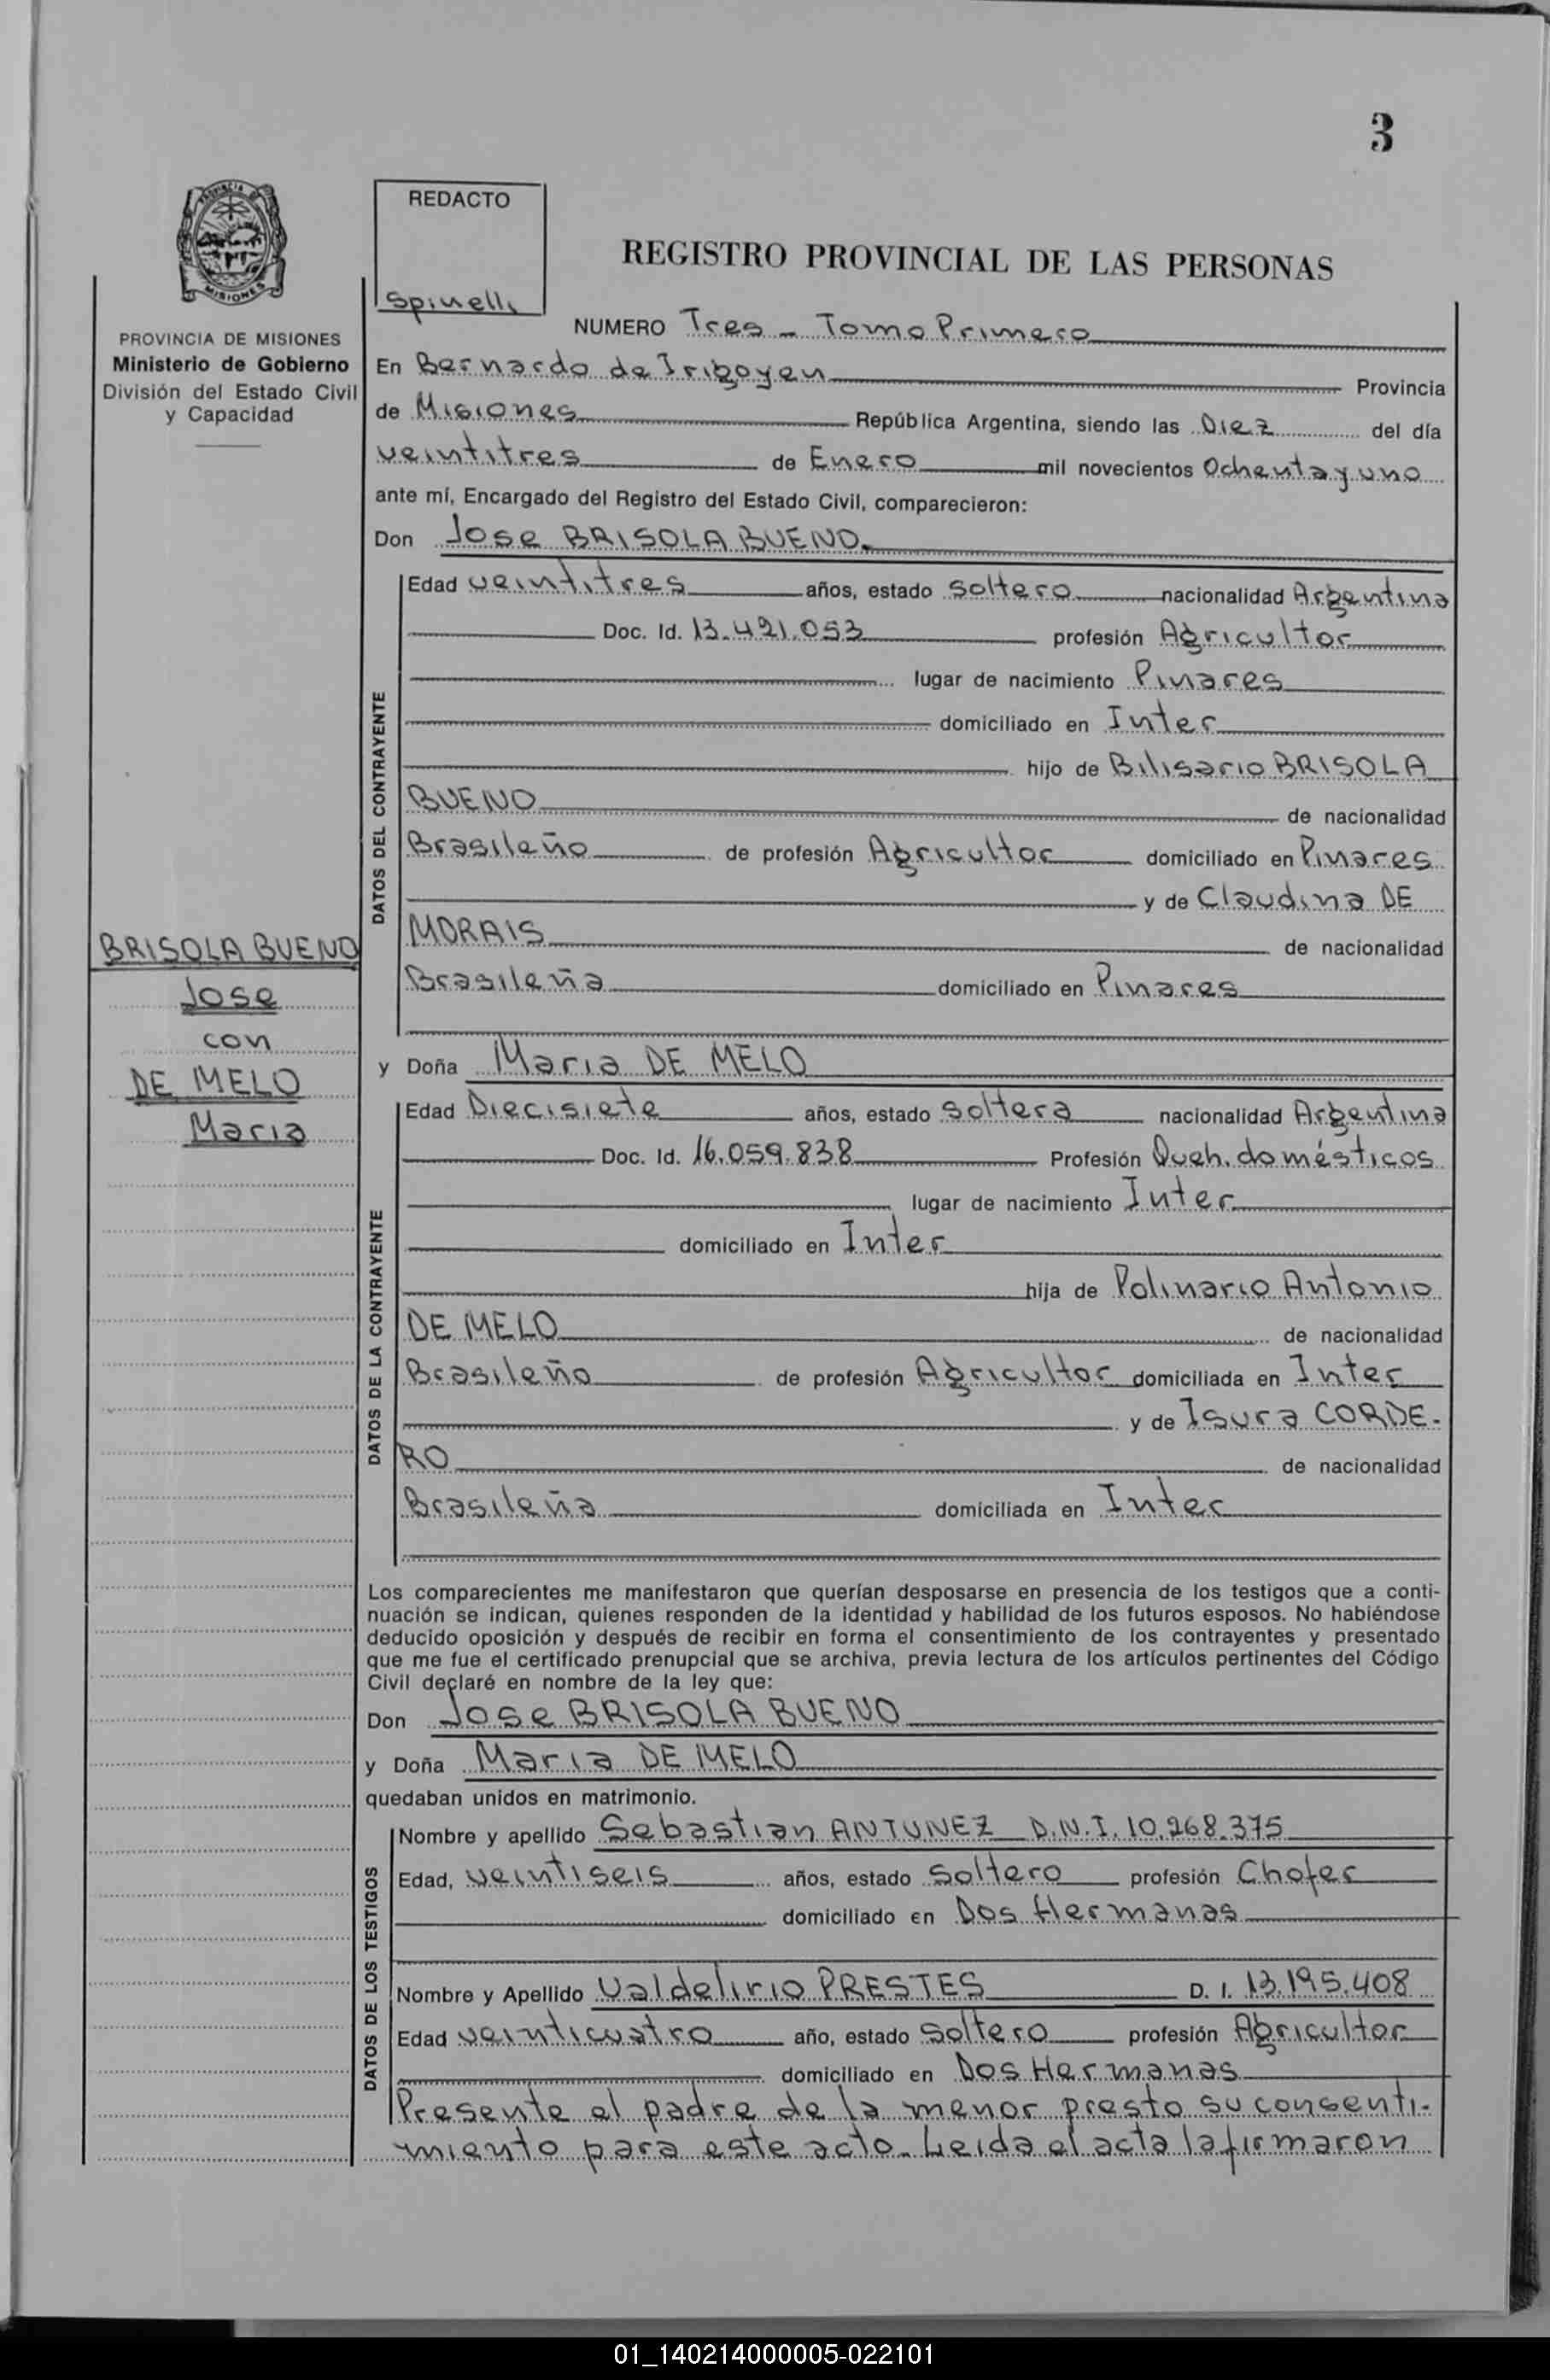 3
REDACTO
Spinelli
REGISTRO PROVINCIAL DE LAS PERSONAS
PROVINCIA DE MISIONES
Ministerio de Gobierno
División del Estado Civil
y Capacidad
NUMERO Tres - Tomo Primero
En Bernardo de Irigoyen Provincia
de Misiones República Argentina, siendo las Diez del día
veintitres de Enero mil novecientos Ochenta y uno
ante mí, Encargado del Registro del Estado Civil, comparecieron:
Don Jose BRISOLA BUENO.
DATOS DEL CONTRAYENTE
Edad veintitres años, estado soltero nacionalidad Argentina
Doc. Id. 13.421.053 profesión Agricultor
lugar de nacimiento Pinares
domiciliado en Inter
hijo de Bilisario BRISOLA
BUENO de nacionalidad
Brasileño de profesión Agricultor domiciliado en Pinares
y de Claudina DE
MORAIS de nacionalidad
Brasileña domiciliado en Pinares
BRISOLA BUENO
Jose
con
DE MELO
Maria
y Doña Maria DE MELO
DATOS DE LA CONTRAYENTE
Edad Diecisiete años, estado soltera nacionalidad Argentina
Doc. Id. 16.059.838 Profesión Queh. domésticos
lugar de nacimiento Inter
domiciliado en Inter
hija de Polinario Antonio
DE MELO de nacionalidad
Brasileño de profesión Agricultor domiciliada en Inter
y de Isura CORDE-
RO de nacionalidad
Brasileña domiciliada en Inter
Los comparecientes me manifestaron que querían desposarse en presencia de los testigos que a conti-
nuación se indican, quienes responden de la identidad y habilidad de los futuros esposos. No habiéndose
deducido oposición y después de recibir en forma el consentimiento de los contrayentes y presentado
que me fue el certificado prenupcial que se archiva, previa lectura de los artículos pertinentes del Código
Civil declaré en nombre de la ley que:
Don Jose BRISOLA BUENO
y Doña Maria DE MELO
quedaban unidos en matrimonio.
DATOS DE LOS TESTIGOS
Nombre y apellido Sebastian ANTUNEZ D.N.I. 10.268.375
Edad, veintiseis años, estado soltero profesión Chofer
domiciliado en Dos Hermanas
Nombre y Apellido Valdelirio PRESTES D. I. 13.195.408
Edad veinticuatro año, estado soltero profesión Agricultor
domiciliado en Dos Hermanas
Presente el padre de la menor presto su consenti-
miento para este acto. Leida el acta la firmaron
01_140214000005-022101